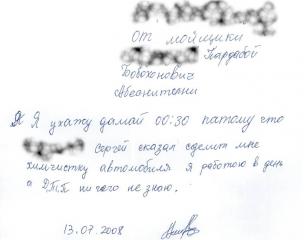 от мойщики
Кардабой
Бовохонович
Авганитени
Я ухажу дамай 00:30 патаму что
Сергей сказал сделит мне
химчистку автомобиля я работою в день
а ДТП ничего незнаю.
13.07.2008